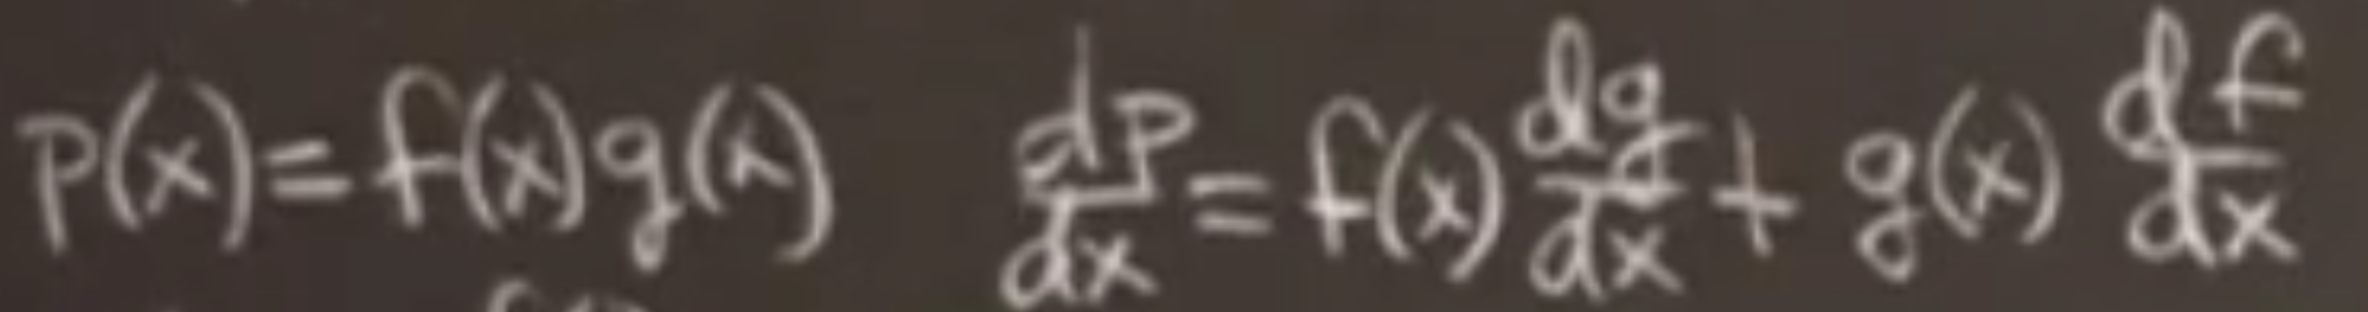 p(x) = f(x)g(x) dp/dx = f(x) dg/dx + g(x) df/dx